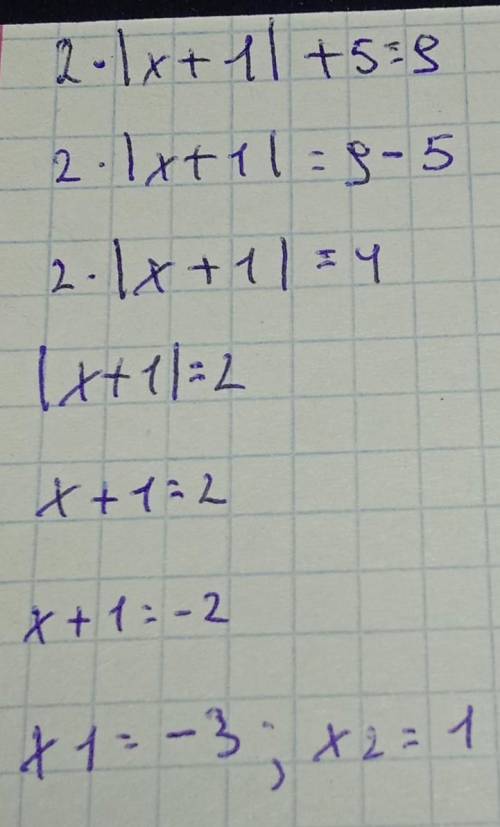 2·|x+1|+5=9
2·|x+1|=9-5
2·|x+1|=4
|x+1|=2
x+1=2
x+1=-2
x1=-3; x2=1